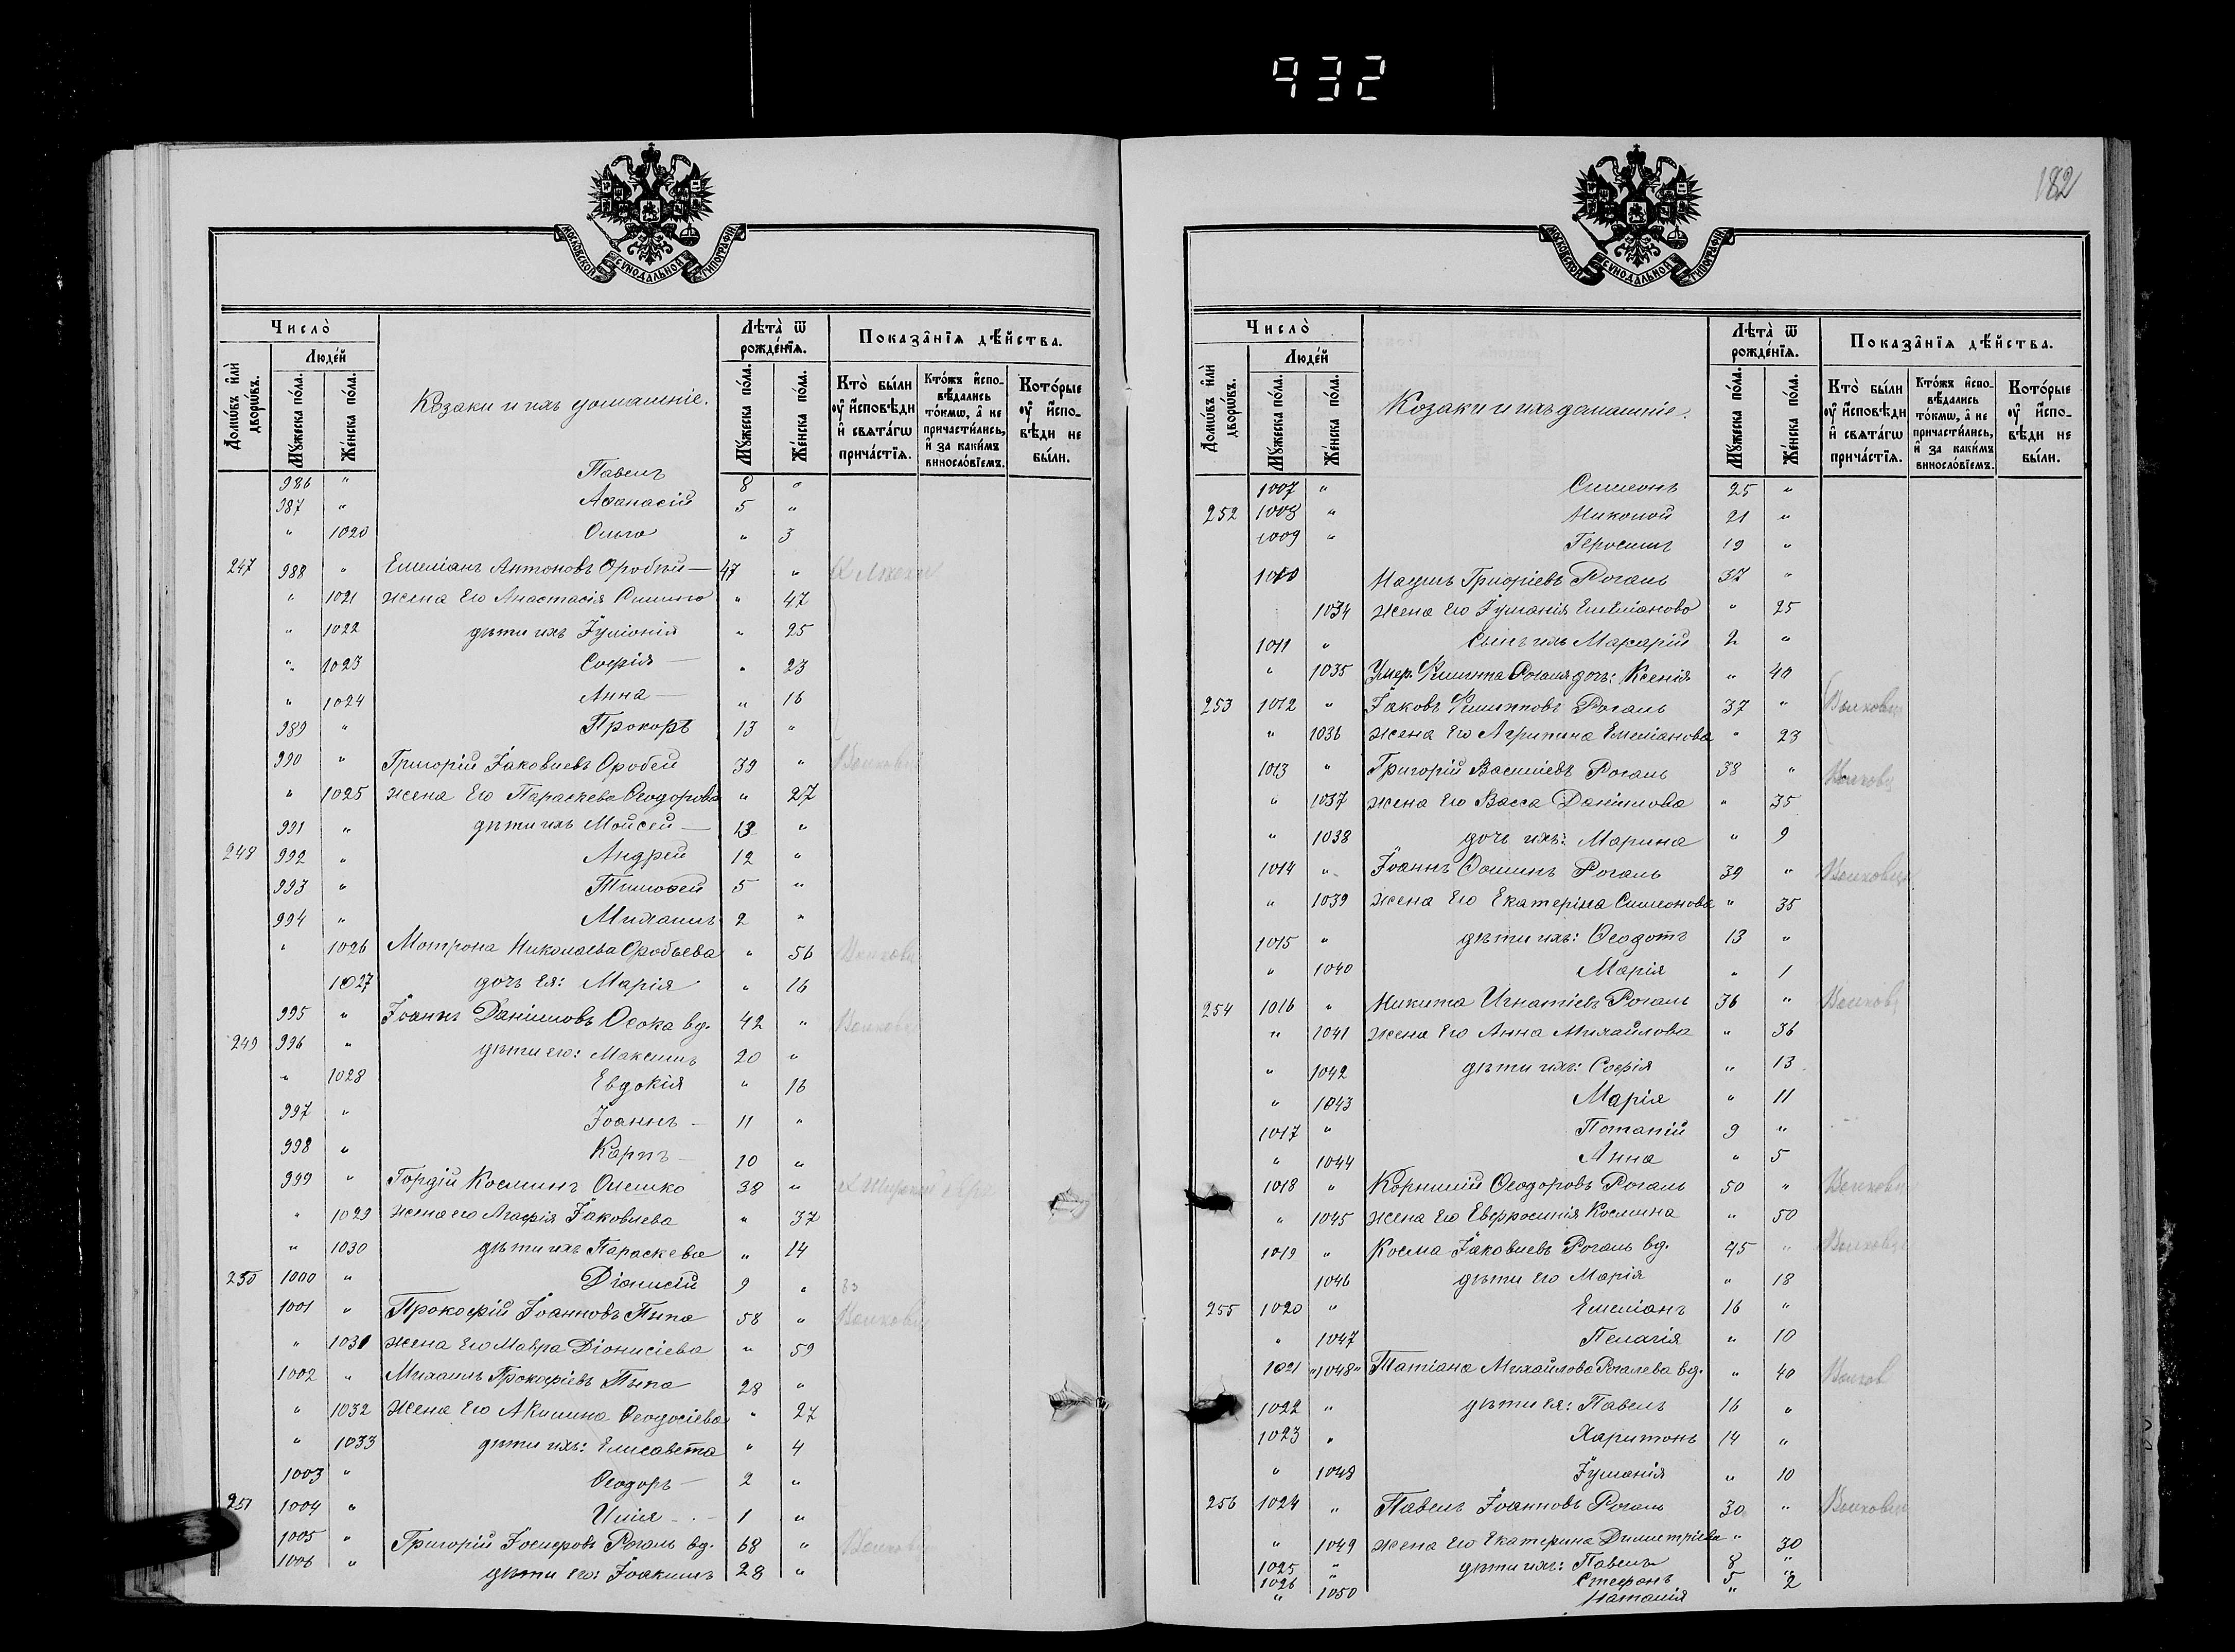 932
МОСКОВСКОЙ СѴНОДАЛЬНОЙ ТИПОГРАФІИ
Число̀
Людéй
Лѣта̀ ѿ рождéнїѧ.
Показа̂нїѧ дѣ́йства.
Домѡ́въ и҆лѝ дворѡ́въ.
Мꙋжеска по́ла.
Же́нска по́ла.
Козаки и ихъ домашніе.
Мꙋжеска по́ла.
Же́нска по́ла.
Кто̀ бы́ли ᲂу҆ и҆сповѣди и҆ свѧта́гѡ прича́стїѧ.
Кто́жъ и҆спо-вѣдались то́кмѡ, а҆ не причасти́лись, и҆ за каки́мъ винослóвїемъ.
Кото́рые ᲂу҆ и҆спо-вѣди не бы́ли.
986 " Павелъ 8 "
987 " Аѳанасій 5 "
" 1020 Ольга " 3
247 988 " Емеліанъ Антоновъ Оробѣй 47 "
" 1021 жена его Анастасія " 47
" 1022 дѣти ихъ Іуліанія " 25
" 1023 Софія " 23
" 1024 Анна " 16
989 " Прокопъ 13 "
990 " Григорій Іаковлевъ Оробей 39 " Волковцы
" 1025 жена его Параскева Ѳеодорова " 27
991 " дѣти ихъ Мойсей 13 "
248 992 " Андрей 12 "
993 " Тимоѳей 5 "
994 " Михаилъ 2 "
" 1026 Мотрона Николаева Оробьева " 56 Волковцы
1027 дочь ея: Марія " 16
995 " Іоаннъ Даніиловъ Осока вд. 42 " Волковцы
249 996 " дѣти его: Максимъ 20 "
" 1028 Евдокія " 16
997 " Іоаннъ 11 "
998 " Карпъ 10 "
999 " Гордій Косминъ Олешко 38 "
" 1029 жена его Агафія Іаковлева " 37
" 1030 дѣти ихъ Параскева " 14
250 1000 " Діонисій 9 "
1001 " Прокофій Іоанновъ Тыпа 58 " Волковцы
" 1031 жена его Мавра Діонисіева " 59
1002 " Михаилъ Прокофіевъ Тыпа 28 "
" 1032 жена его Акилина Ѳеодосіева " 27
" 1033 дѣти ихъ: Елисавета " 4
1003 " Ѳеодоръ 2 "
251 1004 " Илія 1 "
1005 " Григорій Іосифовъ Рогаль вд. 68 " Волковцы
1006 " дѣти его: Іоакимъ 28 "
182
МОСКОВСКОЙ СѴНОДАЛЬНОЙ ТИПОГРАФІИ
Число̀
Людéй
Лѣта̀ ѿ рождéнїѧ.
Показа̂нїѧ дѣ́йства.
Домѡ́въ и҆лѝ дворѡ́въ.
Мꙋжеска по́ла.
Же́нска по́ла.
Козаки и ихъ домашніе.
Мꙋжеска по́ла.
Же́нска по́ла.
Кто̀ бы́ли ᲂу҆ и҆сповѣди и҆ свѧта́гѡ прича́стїѧ.
Кто́жъ и҆спо-вѣдались то́кмѡ, а҆ не причасти́лись, и҆ за каки́мъ винослóвїемъ.
Кото́рые ᲂу҆ и҆спо-вѣди не бы́ли.
1007 " Симеонъ 25 "
252 1008 " Николай 21 "
1009 " Геросимъ 19 "
1010 Наумъ Григоріевъ Рогаль 37 "
1034 жена его Іуліанія Емеліанова " 25
1011 " сынъ ихъ Макарій 2 "
" 1035 Умер. Филиппа Рогаля дочь: Ксенія " 40
253 1012 " Іаковъ Филипповъ Рогаль 37 " Волковцы
" 1036 жена его Агрипина Емеліанова " 23
1013 " Григорій Василіевъ Рогаль 38 " Волковцы
" 1037 жена его Васса Даніилова " 35
" 1038 дочь ихъ: Марина " 9
1014 " Іоаннъ Ѳоминъ Рогаль 39 " Волковцы
" 1039 жена его Екатерина Симеонова " 35
1015 " дѣти ихъ: Ѳеодотъ 13 "
" 1040 Марія " 1
254 1016 " Никита Игнатіевъ Рогаль 36 " Волковцы
" 1041 жена его Анна Михайлова " 36
" 1042 дѣти ихъ: Софія " 13
" 1043 Марія " 11
1017 " Потапій 9 "
" 1044 Анна " 5
1018 " Корнилій Ѳеодоровъ Рогаль 50 " Волковцы
" 1045 жена его Евфросинія Космина " 50
1019 " Косма Іаковлевъ Рогаль вд. 45 " Волковцы
1046 дѣти его Марія " 18
255 1020 " Емеліанъ 16 "
" 1047 Пелагія " 10
1021 "1048" Татіана Михайлова Рогалева вд. " 40 Волков
1022 " дѣти ея: Павелъ 16 "
1023 " Харитонъ 14 "
" 1048 Іуліанія " 10
256 1024 " Павелъ Іоанновъ Рогаль 30 " Волковцы
" 1049 жена его Екатерина Димитріева " 30
1025 " дѣти ихъ: Павелъ 8 "
1026 " Стефанъ 5 "
" 1050 Наталія " 2